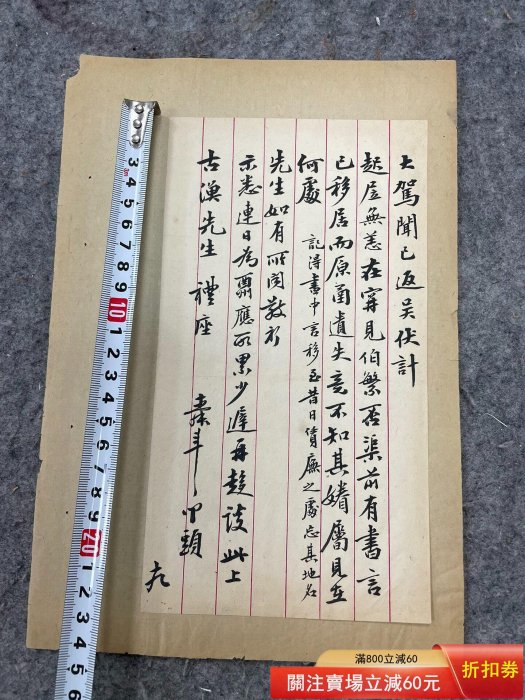 大駕聞已返吳伏計
起居無恙在寗見伯繁否渠前有書言
已移居而原函遺失竟不知其婘屬見在
何處 記得書中言移至昔日賃廡之處忘其地名
先生如有所聞敬祈
示悉連日為酬應所累少遲再趨談此上
古漁先生 禮座
3 4 5 6 7 8 9 10 1 2 3 4 5 6 7 8 9 20 1 2 3 4 5
滿800立減60
關注賣場立減60元
折扣券